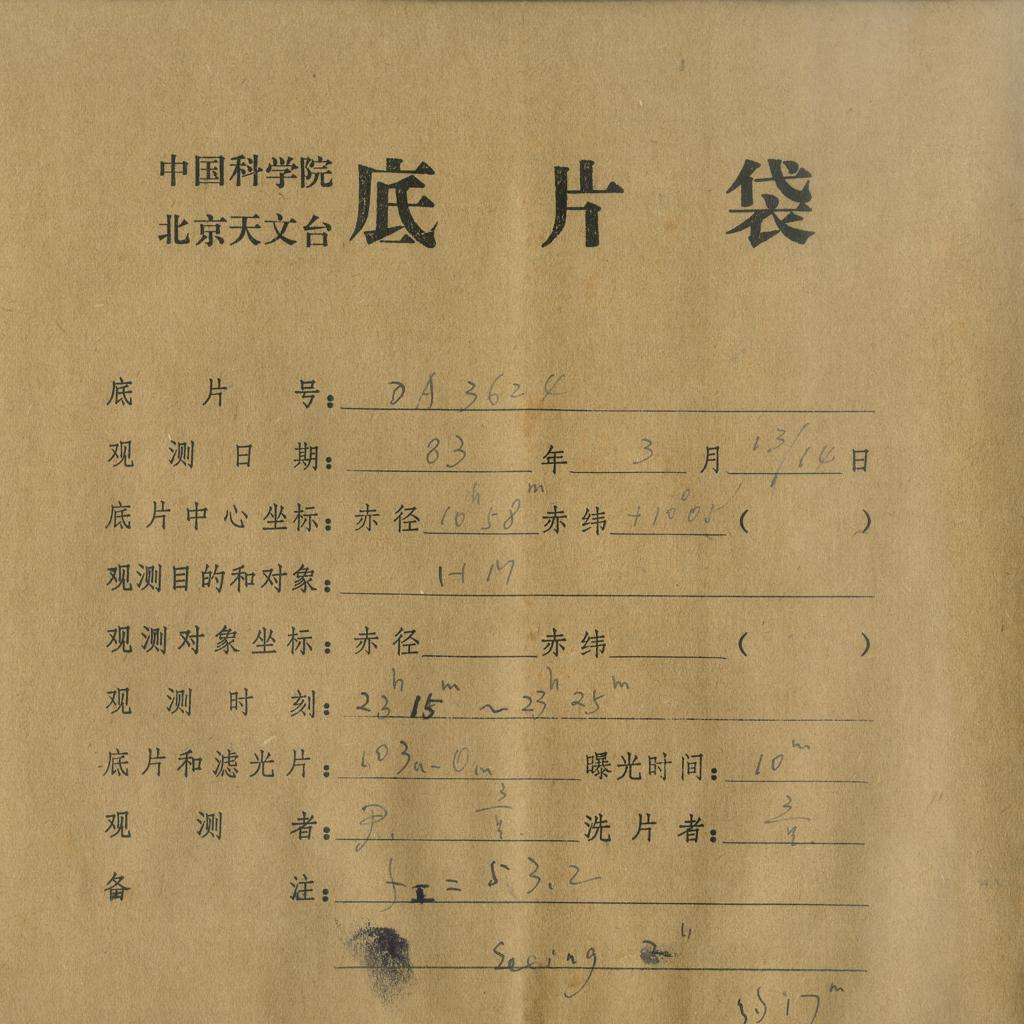 中国科学院
北京天文台
底片袋
底片号: DA 3624
观测日期: 83 年 3 月 13/14 日
底片中心坐标: 赤径 10h 58m 赤纬 +10°05′ ( )
观测目的和对象: HM
观测对象坐标: 赤径 赤纬 ( )
观测时刻: 23h 15m ~ 23h 25m
底片和滤光片: 103a-O 曝光时间: 10m
观测者: 洗片者:
备注: f = 53.2
Seeing 2"
17m